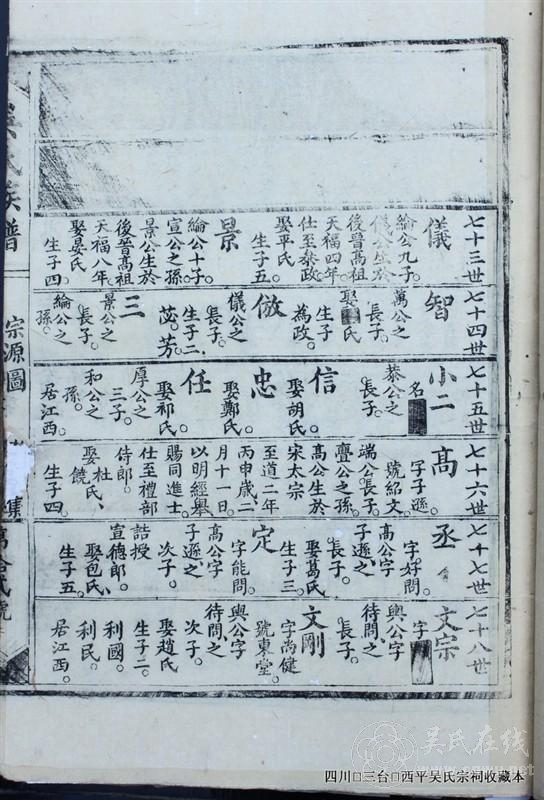 七十三世
儀
綸公九子。
儀公生於
後晉高祖
天福四年
仕至泰政
娶平氏
生子五。
景
綸公十子。
宣公之孫。
景公生於
後晉高祖
天福八年。
娶晏氏
生子四。
七十四世
智
萬公之
長子。
娶氏
生子
為政。
倣
儀公之
長子。
生子二、
苾。芳。
三
景公之
長子。
綸公之
孫。
七十五世
小二
名
恭公之
長子。
信
娶胡氏。
忠
娶鄭氏。
任
娶祁氏。
厚公之
三子。
和公之
孫。
居江西。
七十六世
高
字子遜。
號紹文。
端公長子。
亶公之孫。
高公生於
宋太宗
至道二年
丙申歲二
月十一日。
以明經舉
賜同進士
仕至禮部
侍郎。
娶杜氏、
饒
生子四。
七十七世
丞
字好問。
高公字
子遜之
長子。
娶葛氏
生子三。
定
字能問。
高公字
子遜之
次子。
誥授
宣德郎。
娶包氏、
生子五。
七十八世
文宗
字
與公字
待問之
長子。
文剛
字尚健
號東堂。
與公字
待問之
次子。
娶趙氏
生子二。
利國。
利民。
居江西。
族譜
宗源圖
集
吴氏在线
四川□三台□西平吴氏宗祠收藏本